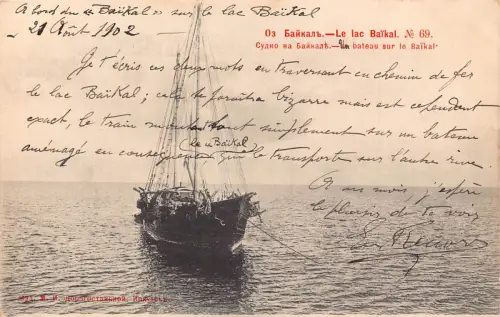 A bord du « Baïkal » sur le lac Baïkal
21 Août 1902
Оз Байкалъ.—Le lac Baïkal. № 69.
Судно на Байкалѣ.—Un bateau sur le Baïkal
Je t'écris ces deux mots en traversant en chemin de fer
le lac Baïkal ; cela te paraîtra bizarre mais est cependant
exact, le train montant tout simplement sur un bateau
(le « Baïkal »)
aménagé en conséquence qui le transporte sur l'autre rive.
A ce mois, j'espère
le plaisir de te voir